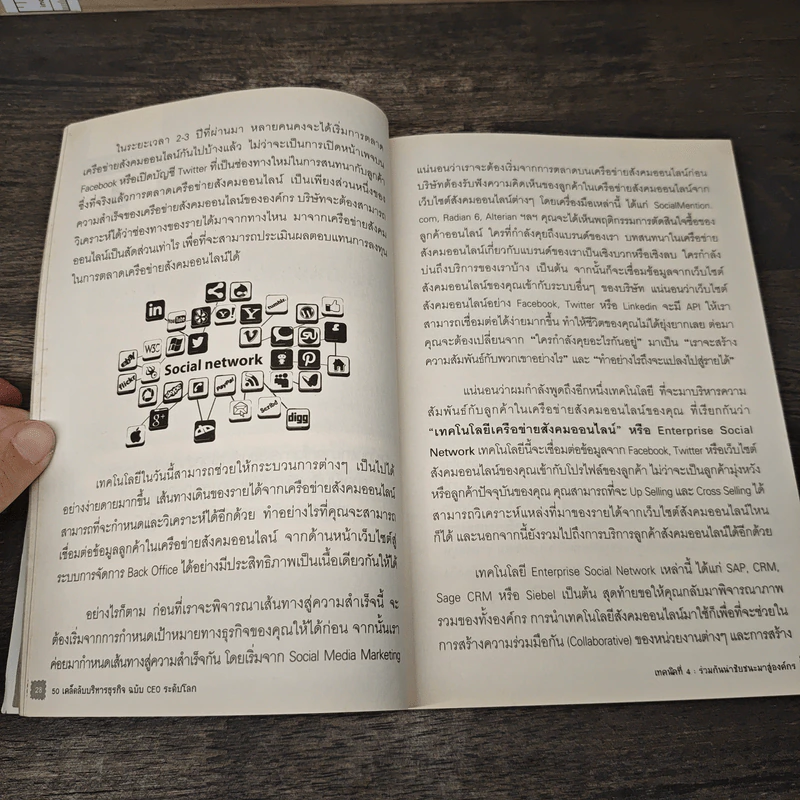 ในระยะเวลา 2-3 ปีที่ผ่านมา หลายคนคงจะได้เริ่มการตลาด
เครือข่ายสังคมออนไลน์กันไปบ้างแล้ว ไม่ว่าจะเป็นการเปิดหน้าเพจบน
Facebook หรือเปิดบัญชี Twitter ที่เป็นช่องทางใหม่ในการสนทนากับลูกค้า
ซึ่งที่จริงแล้วการตลาดเครือข่ายสังคมออนไลน์ เป็นเพียงส่วนหนึ่งของ
ความสำเร็จของเครือข่ายสังคมออนไลน์ขององค์กร บริษัทจะต้องสามารถ
วิเคราะห์ได้ว่าช่องทางของรายได้มาจากทางไหน มาจากเครือข่ายสังคม
ออนไลน์เป็นสัดส่วนเท่าไร เพื่อที่จะสามารถประเมินผลตอบแทนการลงทุน
ในการตลาดเครือข่ายสังคมออนไลน์ได้
Social network
W3C
flickr
PayPal
Scribd
digg
เทคโนโลยีในวันนี้สามารถช่วยให้กระบวนการต่างๆ เป็นไปได้
อย่างง่ายดายมากขึ้น เส้นทางเดินของรายได้จากเครือข่ายสังคมออนไลน์
สามารถที่จะกำหนดและวิเคราะห์ได้อีกด้วย ทำอย่างไรที่คุณจะสามารถ
เชื่อมต่อข้อมูลลูกค้าในเครือข่ายสังคมออนไลน์ จากด้านหน้าเว็บไซต์สู่
ระบบการจัดการ Back Office ได้อย่างมีประสิทธิภาพเป็นเนื้อเดียวกันให้ได้
อย่างไรก็ตาม ก่อนที่เราจะพิจารณาเส้นทางสู่ความสำเร็จนี้ จะ
ต้องเริ่มจากการกำหนดเป้าหมายทางธุรกิจของคุณให้ได้ก่อน จากนั้นเรา
ค่อยมากำหนดเส้นทางสู่ความสำเร็จกัน โดยเริ่มจาก Social Media Marketing
28 50 เคล็ดลับบริหารธุรกิจ ฉบับ CEO ระดับโลก
แน่นอนว่าเราจะต้องเริ่มจากการตลาดบนเครือข่ายสังคมออนไลน์ก่อน
บริษัทต้องรับฟังความคิดเห็นของลูกค้าในเครือข่ายสังคมออนไลน์จาก
เว็บไซต์สังคมออนไลน์ต่างๆ โดยเครื่องมือเหล่านี้ ได้แก่ SocialMention.
com, Radian 6, Alterian ฯลฯ คุณจะได้เห็นพฤติกรรมการตัดสินใจซื้อของ
ลูกค้าออนไลน์ ใครที่กำลังคุยถึงแบรนด์ของเรา บทสนทนาในเครือข่าย
สังคมออนไลน์เกี่ยวกับแบรนด์ของเราเป็นเชิงบวกหรือเชิงลบ ใครกำลัง
บ่นถึงบริการของเราบ้าง เป็นต้น จากนั้นก็จะเชื่อมข้อมูลจากเว็บไซต์
สังคมออนไลน์ของคุณเข้ากับระบบอื่นๆ ของบริษัท แน่นอนว่าเว็บไซต์
สังคมออนไลน์อย่าง Facebook, Twitter หรือ Linkedin จะมี API ให้เรา
สามารถเชื่อมต่อได้ง่ายมากขึ้น ทำให้ชีวิตของคุณไม่ได้ยุ่งยากเลย ต่อมา
คุณจะต้องเปลี่ยนจาก “ใครกำลังคุยอะไรกันอยู่” มาเป็น “เราจะสร้าง
ความสัมพันธ์กับพวกเขาอย่างไร” และ “ทำอย่างไรถึงจะแปลงไปสู่รายได้”
แน่นอนว่าผมกำลังพูดถึงอีกหนึ่งเทคโนโลยี ที่จะมาบริหารความ
สัมพันธ์กับลูกค้าในเครือข่ายสังคมออนไลน์ของคุณ ที่เรียกกันว่า
“เทคโนโลยีเครือข่ายสังคมออนไลน์” หรือ Enterprise Social
Network เทคโนโลยีนี้จะเชื่อมต่อข้อมูลจาก Facebook, Twitter หรือเว็บไซต์
สังคมออนไลน์ของคุณเข้ากับโปรไฟล์ของลูกค้า ไม่ว่าจะเป็นลูกค้ามุ่งหวัง
หรือลูกค้าปัจจุบันของคุณ คุณสามารถที่จะ Up Selling และ Cross Selling ได้
สามารถวิเคราะห์แหล่งที่มาของรายได้จากเว็บไซต์สังคมออนไลน์ไหน
ก็ได้ และนอกจากนี้ยังรวมไปถึงการบริการลูกค้าสังคมออนไลน์ได้อีกด้วย
เทคโนโลยี Enterprise Social Network เหล่านี้ ได้แก่ SAP, CRM,
Sage CRM หรือ Siebel เป็นต้น สุดท้ายขอให้คุณกลับมาพิจารณาภาพ
รวมของทั้งองค์กร การนำเทคโนโลยีสังคมออนไลน์มาใช้ก็เพื่อที่จะช่วยใน
การสร้างความร่วมมือกัน (Collaborative) ของหน่วยงานต่างๆ และการสร้าง
เทคนิคที่ 4 : ร่วมกันนำชัยชนะมาสู่องค์กร